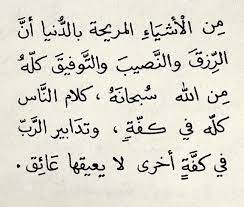 مِن الْأشيَاءِ المريحة بالدُّنيا أنَّ
الرِّزقَ وَالنَّصيبَ والتَّوفيقَ كلّهُ
مِن الله سُبحانَهُ ، كلام النَّاس
كلّه في كـفّةٍ ، وتدابير الرَّبّ
في كفَّةٍ أخرى لا يعيقها عَائِق .